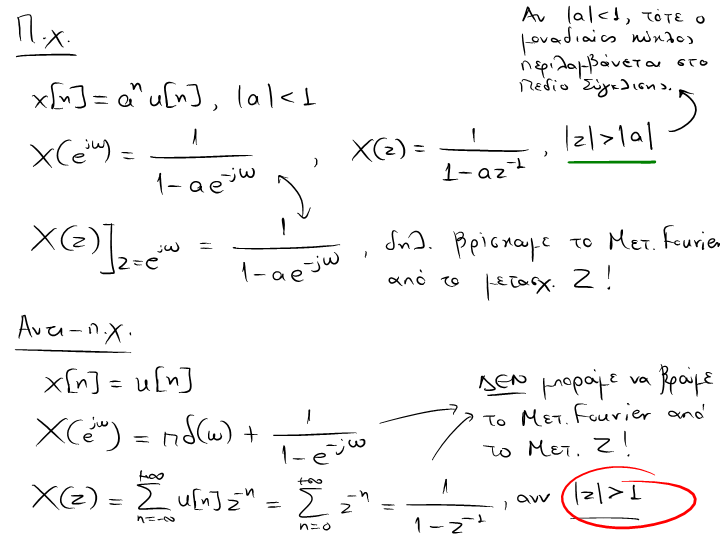 Π.χ.
Αν |a|<1, τότε ο
μοναδιαίος κύκλος
περιλαμβάνεται στο
Πεδίο Σύγκλισης.
x[n] = aⁿ u[n], |a| < 1
X(e^{jω}) = 1/(1-ae^{-jω}) , X(z) = 1/(1-az^{-1}) , |z|>|a|
X(z)]_{z=e^{jω}} = 1/(1-ae^{-jω}) , δηλ. βρίσκαμε το Μετ. Fourier
από το μετασχ. Z!
Αντι-π.χ.
x[n] = u[n]
ΔΕΝ μποράμε να βράμε
το Μετ. Fourier από
το Μετ. Z!
X(e^{jω}) = πδ(ω) + 1/(1-e^{-jω})
X(z) = Σ_{n=-∞}^{+∞} u[n] z^{-n} = Σ_{n=0}^{+∞} z^{-n} = 1/(1-z^{-1}) , ανν |z|>1